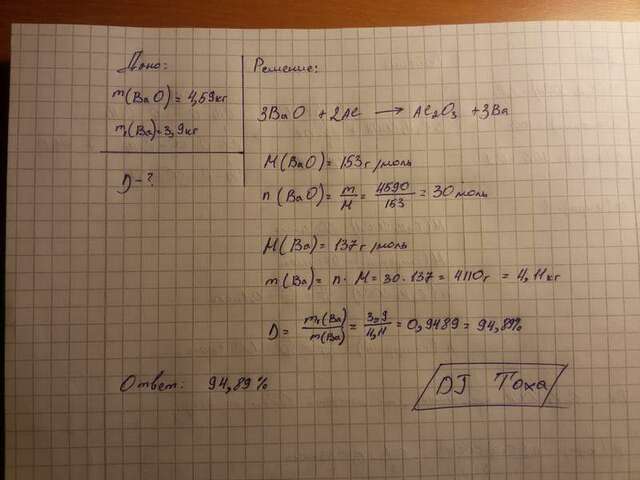 Дано:
m(BaO) = 4,59кг
m₁(Ba)=3,9кг
D-?
Решение:
3BaO + 2Al → Al₂O₃ +3Ba
M(BaO) = 153г/моль
n(BaO)= m/M = 4590/153 = 30 моль
M(Ba)= 137г/моль
m(Ba)= n·M=30·137= 4110г = 4,11кг
D= m₁(Ba)/m(Ba) = 3,9/4,11 = 0,9489 = 94,89%
Ответ: 94,89%
DJ Тоха